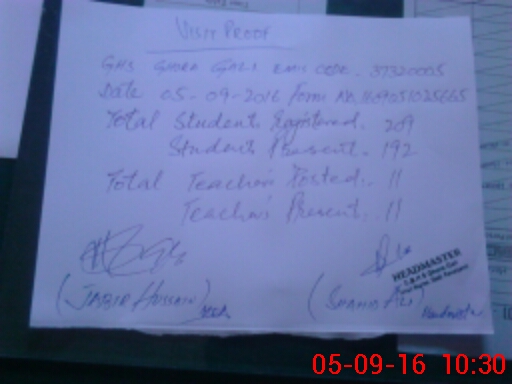 VISIT PROOF
GHS GHORA GALI EMIS CODE. 37320005
Date 05-09-2016 Form No.
Total Students Registered. 209
Students Present. 192
Total Teachers Posted. 11
Teachers Present. 11
(JABIR HUSSAIN) (SHAHID ALI)
HEADMASTER
Headmaster
05-09-16 10:30